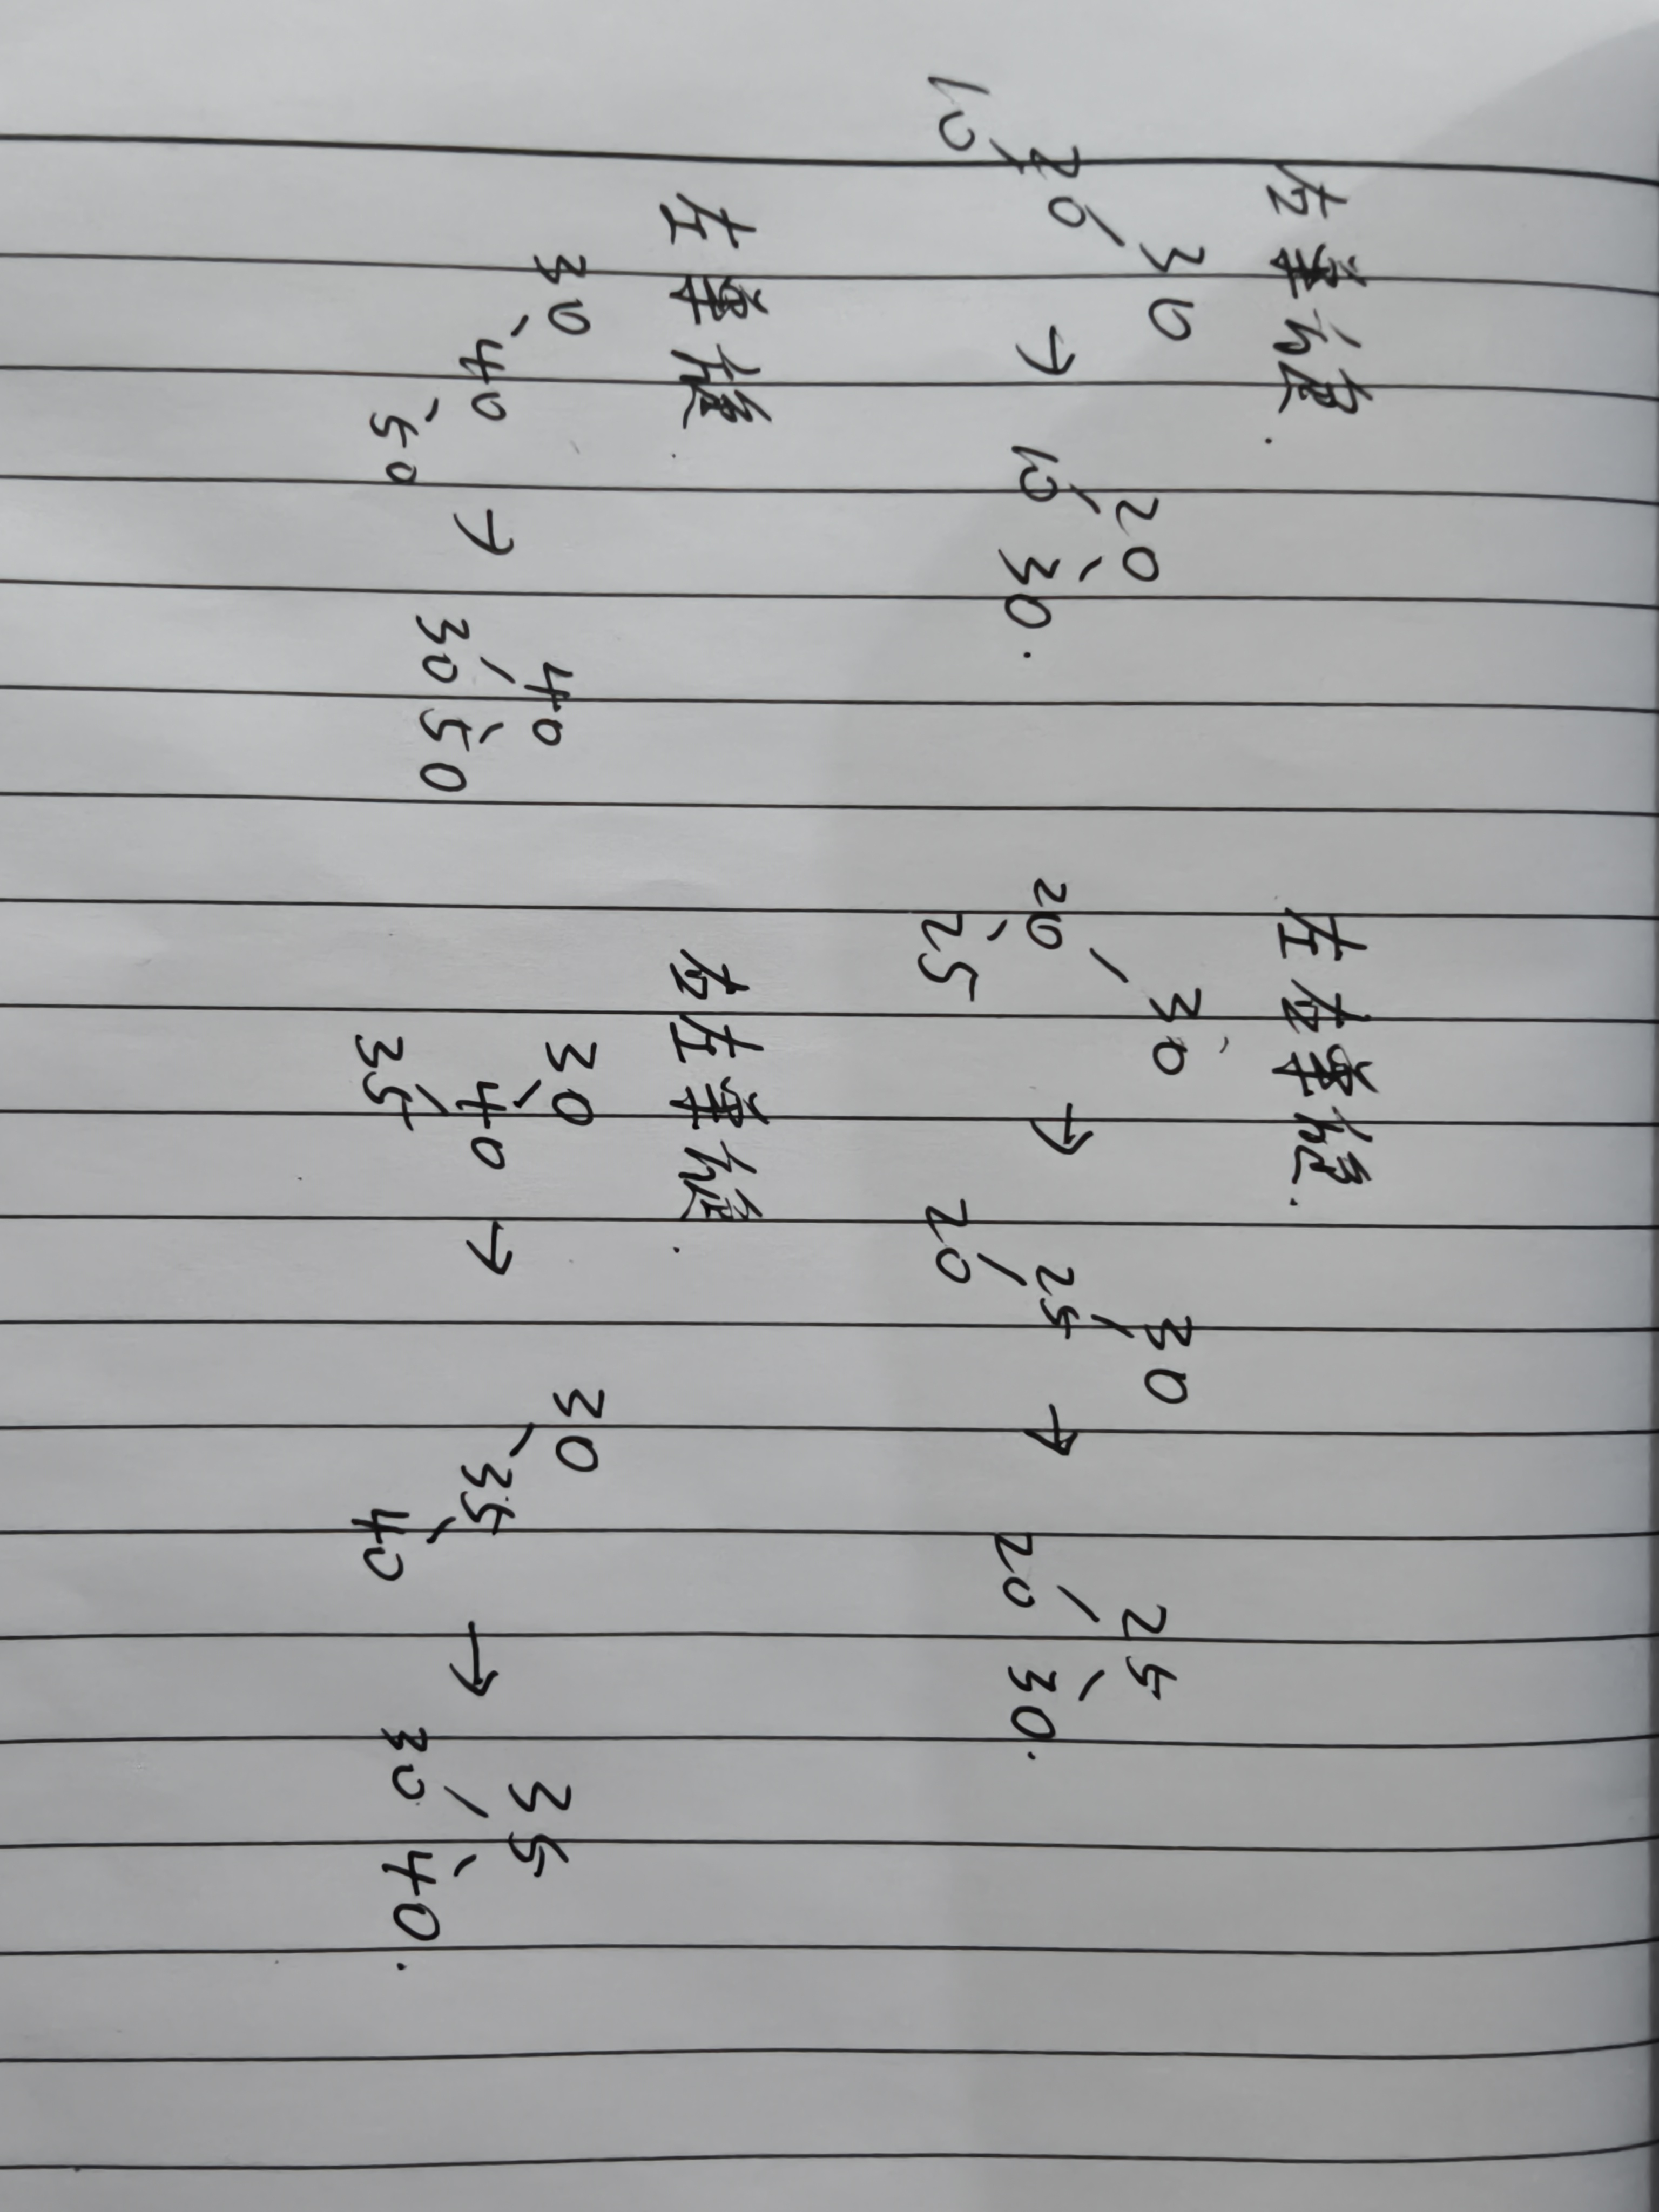 右单旋. 左右单旋.
30 20 30 30 25
20 → 10 30. 20 → 25 → 20 30.
10 25 20
左单旋. 右左单旋.
30 40 30 30 35
40 → 30 50 40 → 35 → 30 40.
50 35 40